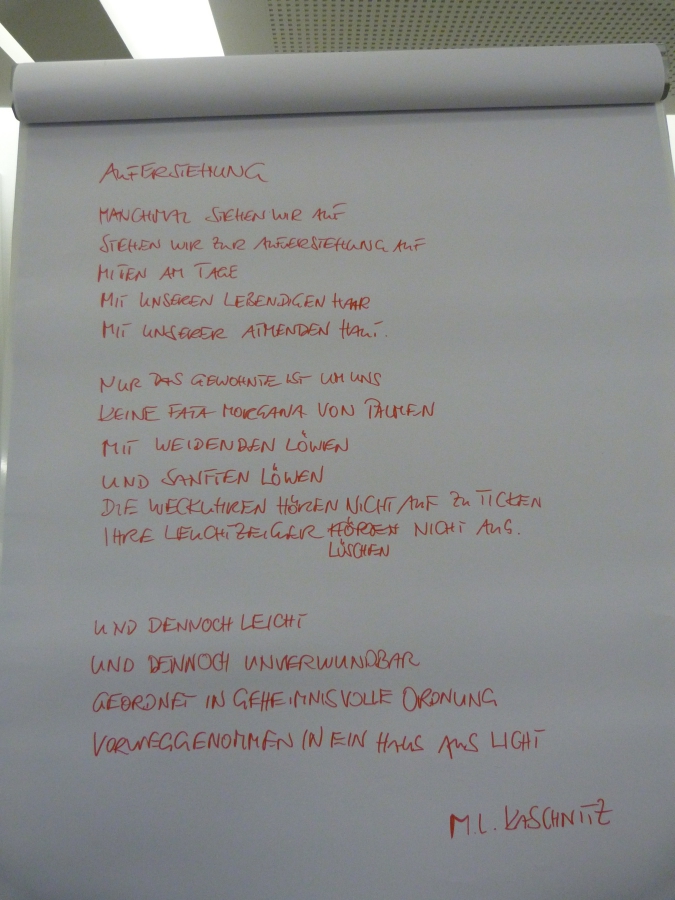 AUFERSTEHUNG
MANCHMAL STEHEN WIR AUF
STEHEN WIR ZUR AUFERSTEHUNG AUF
MITEN AM TAGE
MIT UNSEREN LEBENDIGEN HAAR
MIT UNSERER ATMENDEN HAUT.
NUR DAS GEWOHNTE IST UM UNS
KEINE FATA MORGANA VON PALMEN
MIT WEIDENDEN LÖWEN
UND SANFTEN LÖWEN
DIE WECKUHREN HÖREN NICHT AUF ZU TICKEN
IHRE LEUCHTZEIGER HÖREN NICHT AUS.
LÖSCHEN
UND DENNOCH LEICHT
UND DENNOCH UNVERWUNDBAR
GEORDNET IN GEHEIMNISVOLLE ORDNUNG
VORWEGGENOMMEN IN EIN HAUS AUS LICHT
M.L. KASCHNITZ